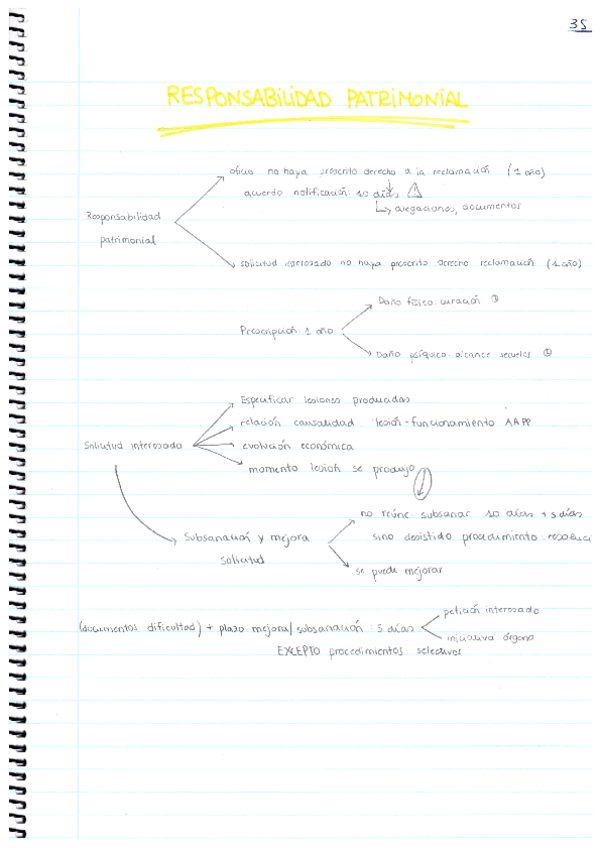 35
RESPONSABILIDAD PATRIMONIAL
oficio no haya prescrito derecho a la reclamación (1 año)
acuerdo notificación: 10 días
alegaciones, documentos
Responsabilidad
patrimonial
solicitud interesado no haya prescrito derecho reclamación (1 año)
Daño físico: curación
Prescripción: 1 año
Daño psíquico: alcance secuelas
Especificar lesiones producidas
relación causalidad: lesión-funcionamiento AAPP
Solicitud interesado
evolución económica
momento lesión se produjo
no reúne: subsanar 10 días + 5 días
Subsanación y mejora
solicitud
sino desistido procedimiento
se puede mejorar
petición interesado
(documentos dificultad) + plazo mejora/subsanación: 5 días
iniciativa órgano
EXCEPTO procedimientos selectivos